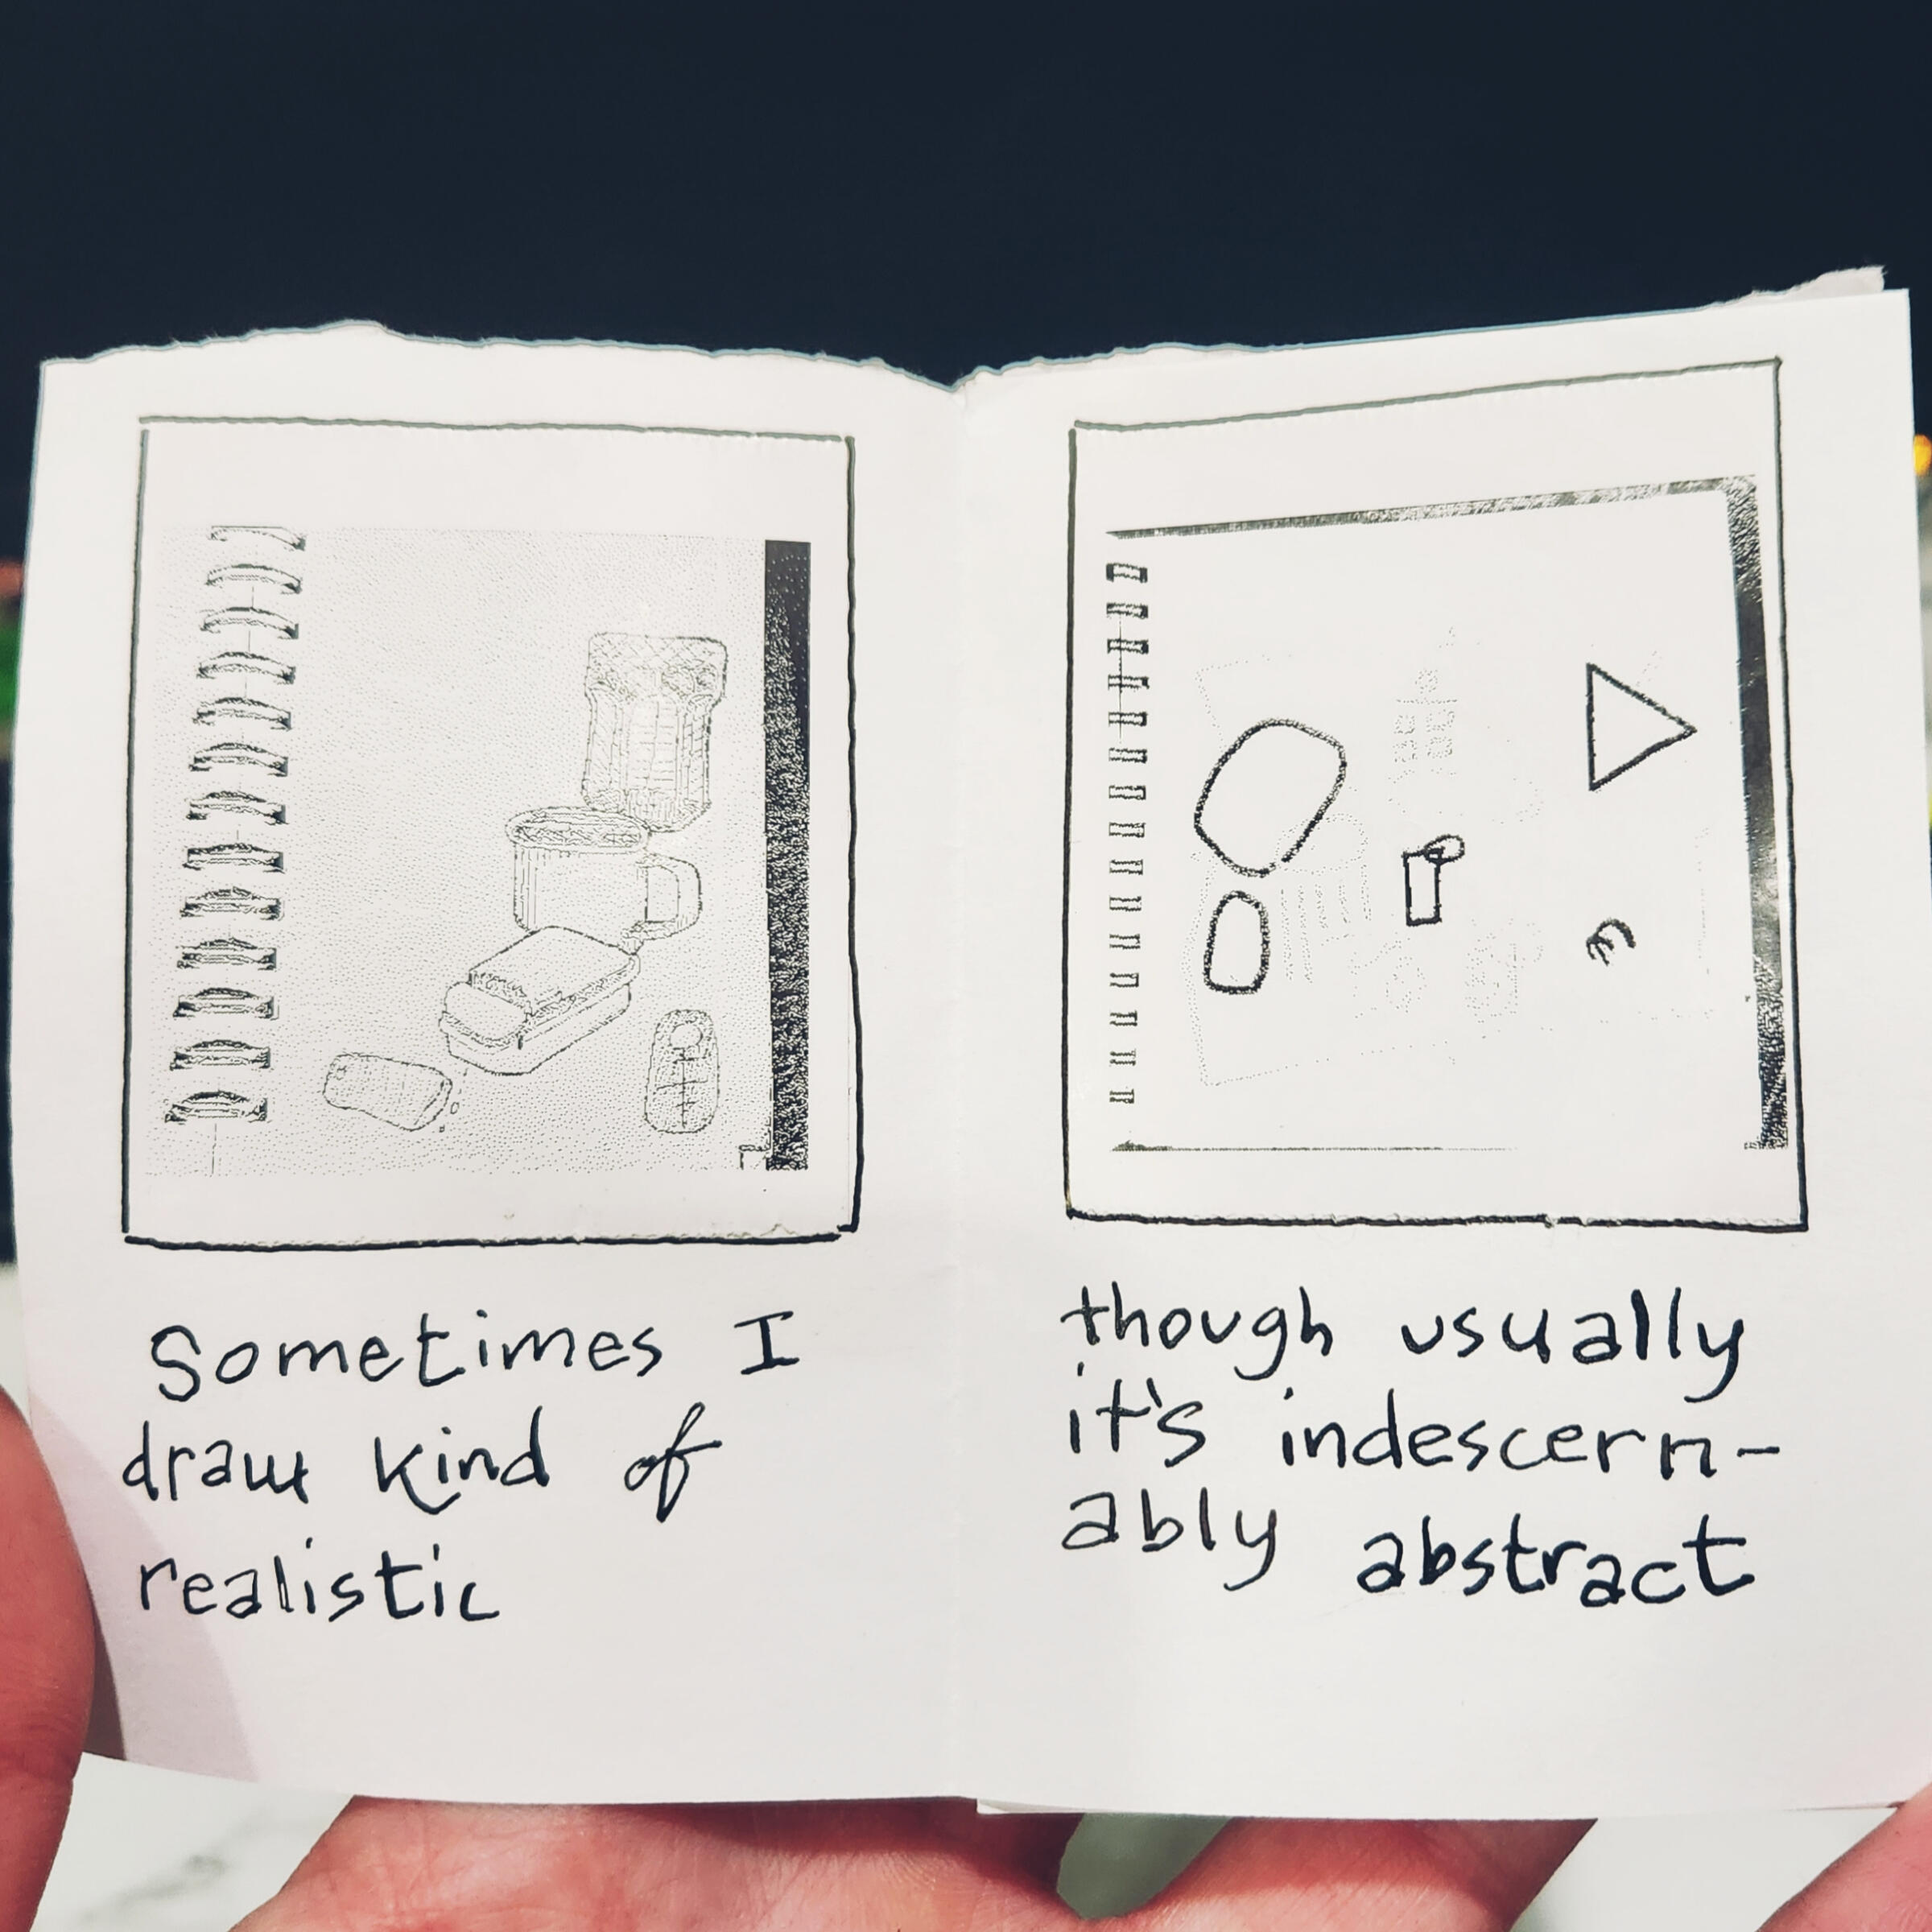 Sometimes I
draw kind of
realistic
though usually
it's indescern-
ably abstract